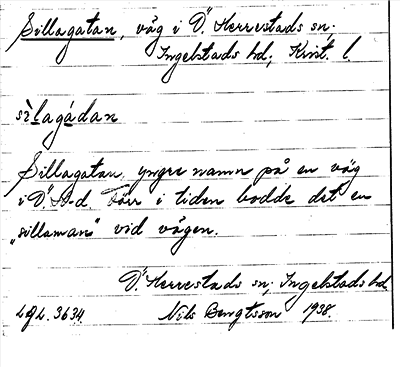 Sillagatan, väg i Ö. Herrestads sn;
Ingelstads hd, Krist. l.
sìlagádan
Sillagatan, yngre namn på en väg
i Ö. H-d. Förr i tiden bodde det en
"sillaman" vid vägen.
Ö. Herrestads sn; Ingelstads hd.
LAL. 3634. Nils Bengtsson 1938.